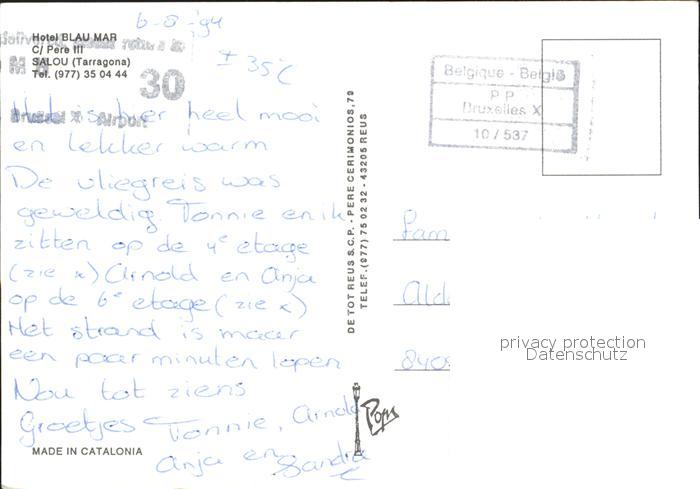 6-8-'94
± 35°C
Hotel BLAU MAR
C/ Pere III
SALOU (Tarragona)
Tel. (977) 35 04 44
30
Brussel X Airport
Het is hier heel mooi
en lekker warm
De vliegreis was
geweldig. Tonnie en ik
zitten op de 4e etage
(zie x) Arnold en Anja
op de 6e etage (zie x)
Het strand is maar
een paar minuten lopen
Nou tot ziens
Groetjes Tonnie, Arnold
Anja en Sandra
MADE IN CATALONIA
DE TOT REUS S.C.P. - PERE CERIMONIOS, 79
TELEF. (977) 75 02 32 - 43205 REUS
Pops
Belgique - België
P P
Bruxelles X
10 / 537
Fam
Ald
840
privacy protection
Datenschutz